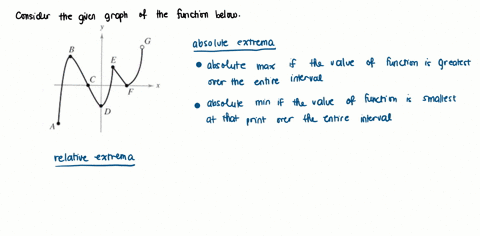 Consider the given graph of the function below.
y
G
B
absolute extrema
E
• absolute max if the value of function is greatest
over the entire interval
C
F
x
• absolute min if the value of function is smallest
D
at that print over the entire interval
A
relative extrema